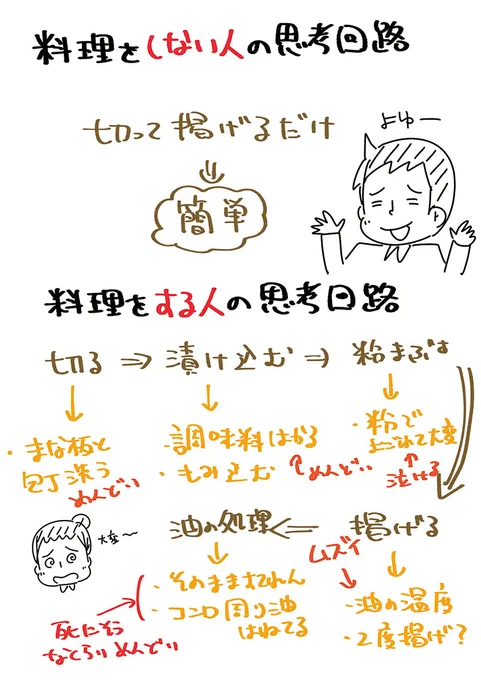 料理をしない人の思考回路
切って揚げるだけ
⇓
簡単
よゆー
料理をする人の思考回路
切る ⇒ 漬け込む ⇒ 粉まぶす
↓ ↓ ↓
・まな板と
包丁洗う
めんどい
・調味料はかる
・もみ込む
↑めんどい
・粉で
よごれて大変
↑
泣ける
油の処理 ⇐ 揚げる
大変〜
ムズイ
・そのまますてれん
・コンロ周り油
はねてる
死にそう
なくらいめんどい
・油の温度
・2度揚げ?